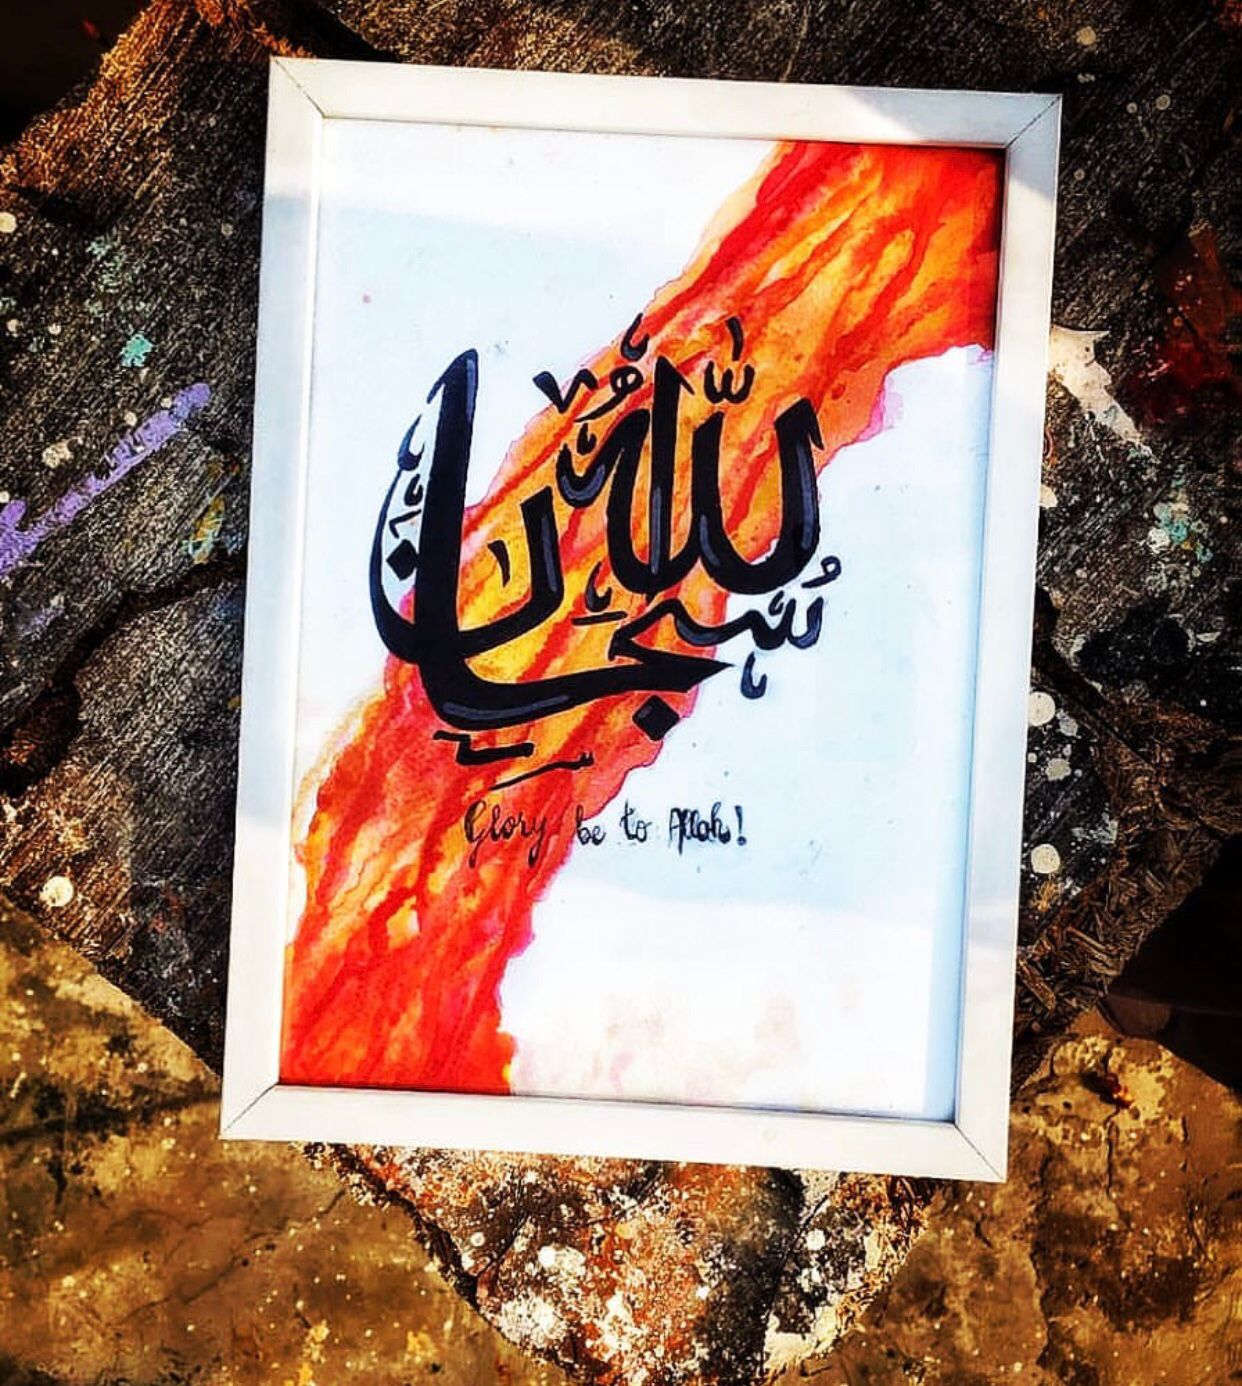 سُبْحَانَ اللّٰهِ
Glory be to Allah!